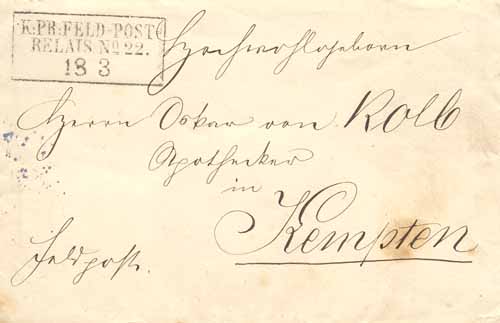 K:PR:FELD-POST
RELAIS No 22.
18 3
Hochwohlgeborn
Herrn Oskar von Kolb
Apotheker
in
Kempten
Feldpost.